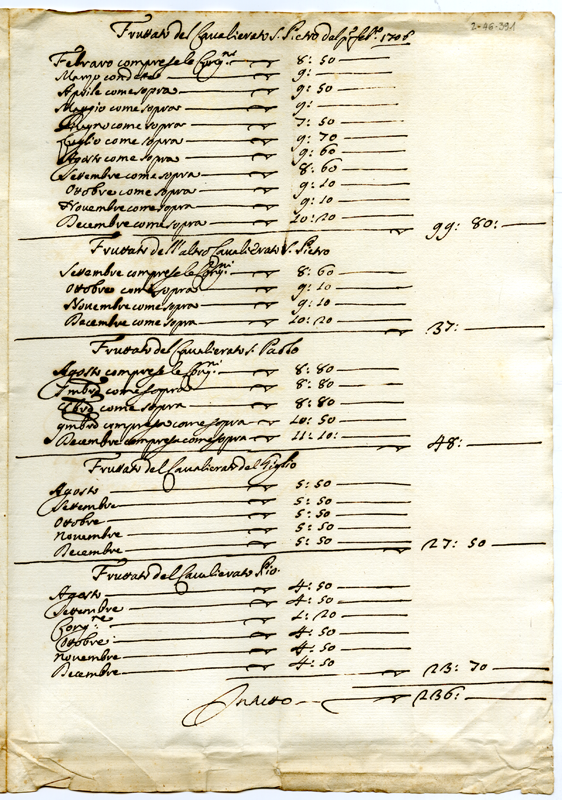 2-96-291
Fruttato del Cavalierato S. Pietro dal p.º feb.º 1706
Febraro comprese le Prop.ni 8: 50
Marzo con dette 9:
Aprile come sopra 9: 50
Maggio come sopra 9:
Giugno come sopra 7: 50
Luglio come sopra 9: 70
Agosto come sopra 9: 60
Settembre come sopra 8: 60
Ottobre come sopra 9: 10
Novembre come sopra 9: 10
Decembre come sopra 10: 20
99: 80:
Fruttato dell'altro Cavalierato S. Pietro
Settembre comprese le Prop.ni 8: 60
Ottobre come sopra 9: 10
Novembre come sopra 9: 10
Decembre come sopra 10: 20
37:
Fruttato del Cavalierato S. Paolo
Agosto comprese le Prop.ni 8: 80
7mbre come sopra 8: 80
8bre come sopra 8: 80
9mbre comprese come sopra 10: 50
Decembre comprese come sopra 11: 10:
48:
Fruttato del Cavalierato del Giglio
Agosto 5: 50
Settembre 5: 50
Ottobre 5: 50
Novembre 5: 50
Decembre 5: 50
27: 50
Fruttato del Cavalierato Pio
Agosto 4: 50
Settembre 4: 50
Prop.ne 1: 20
Ottobre: 4: 50
Novembre 4: 50
Decembre 4: 50
23: 70
In tutto 236: